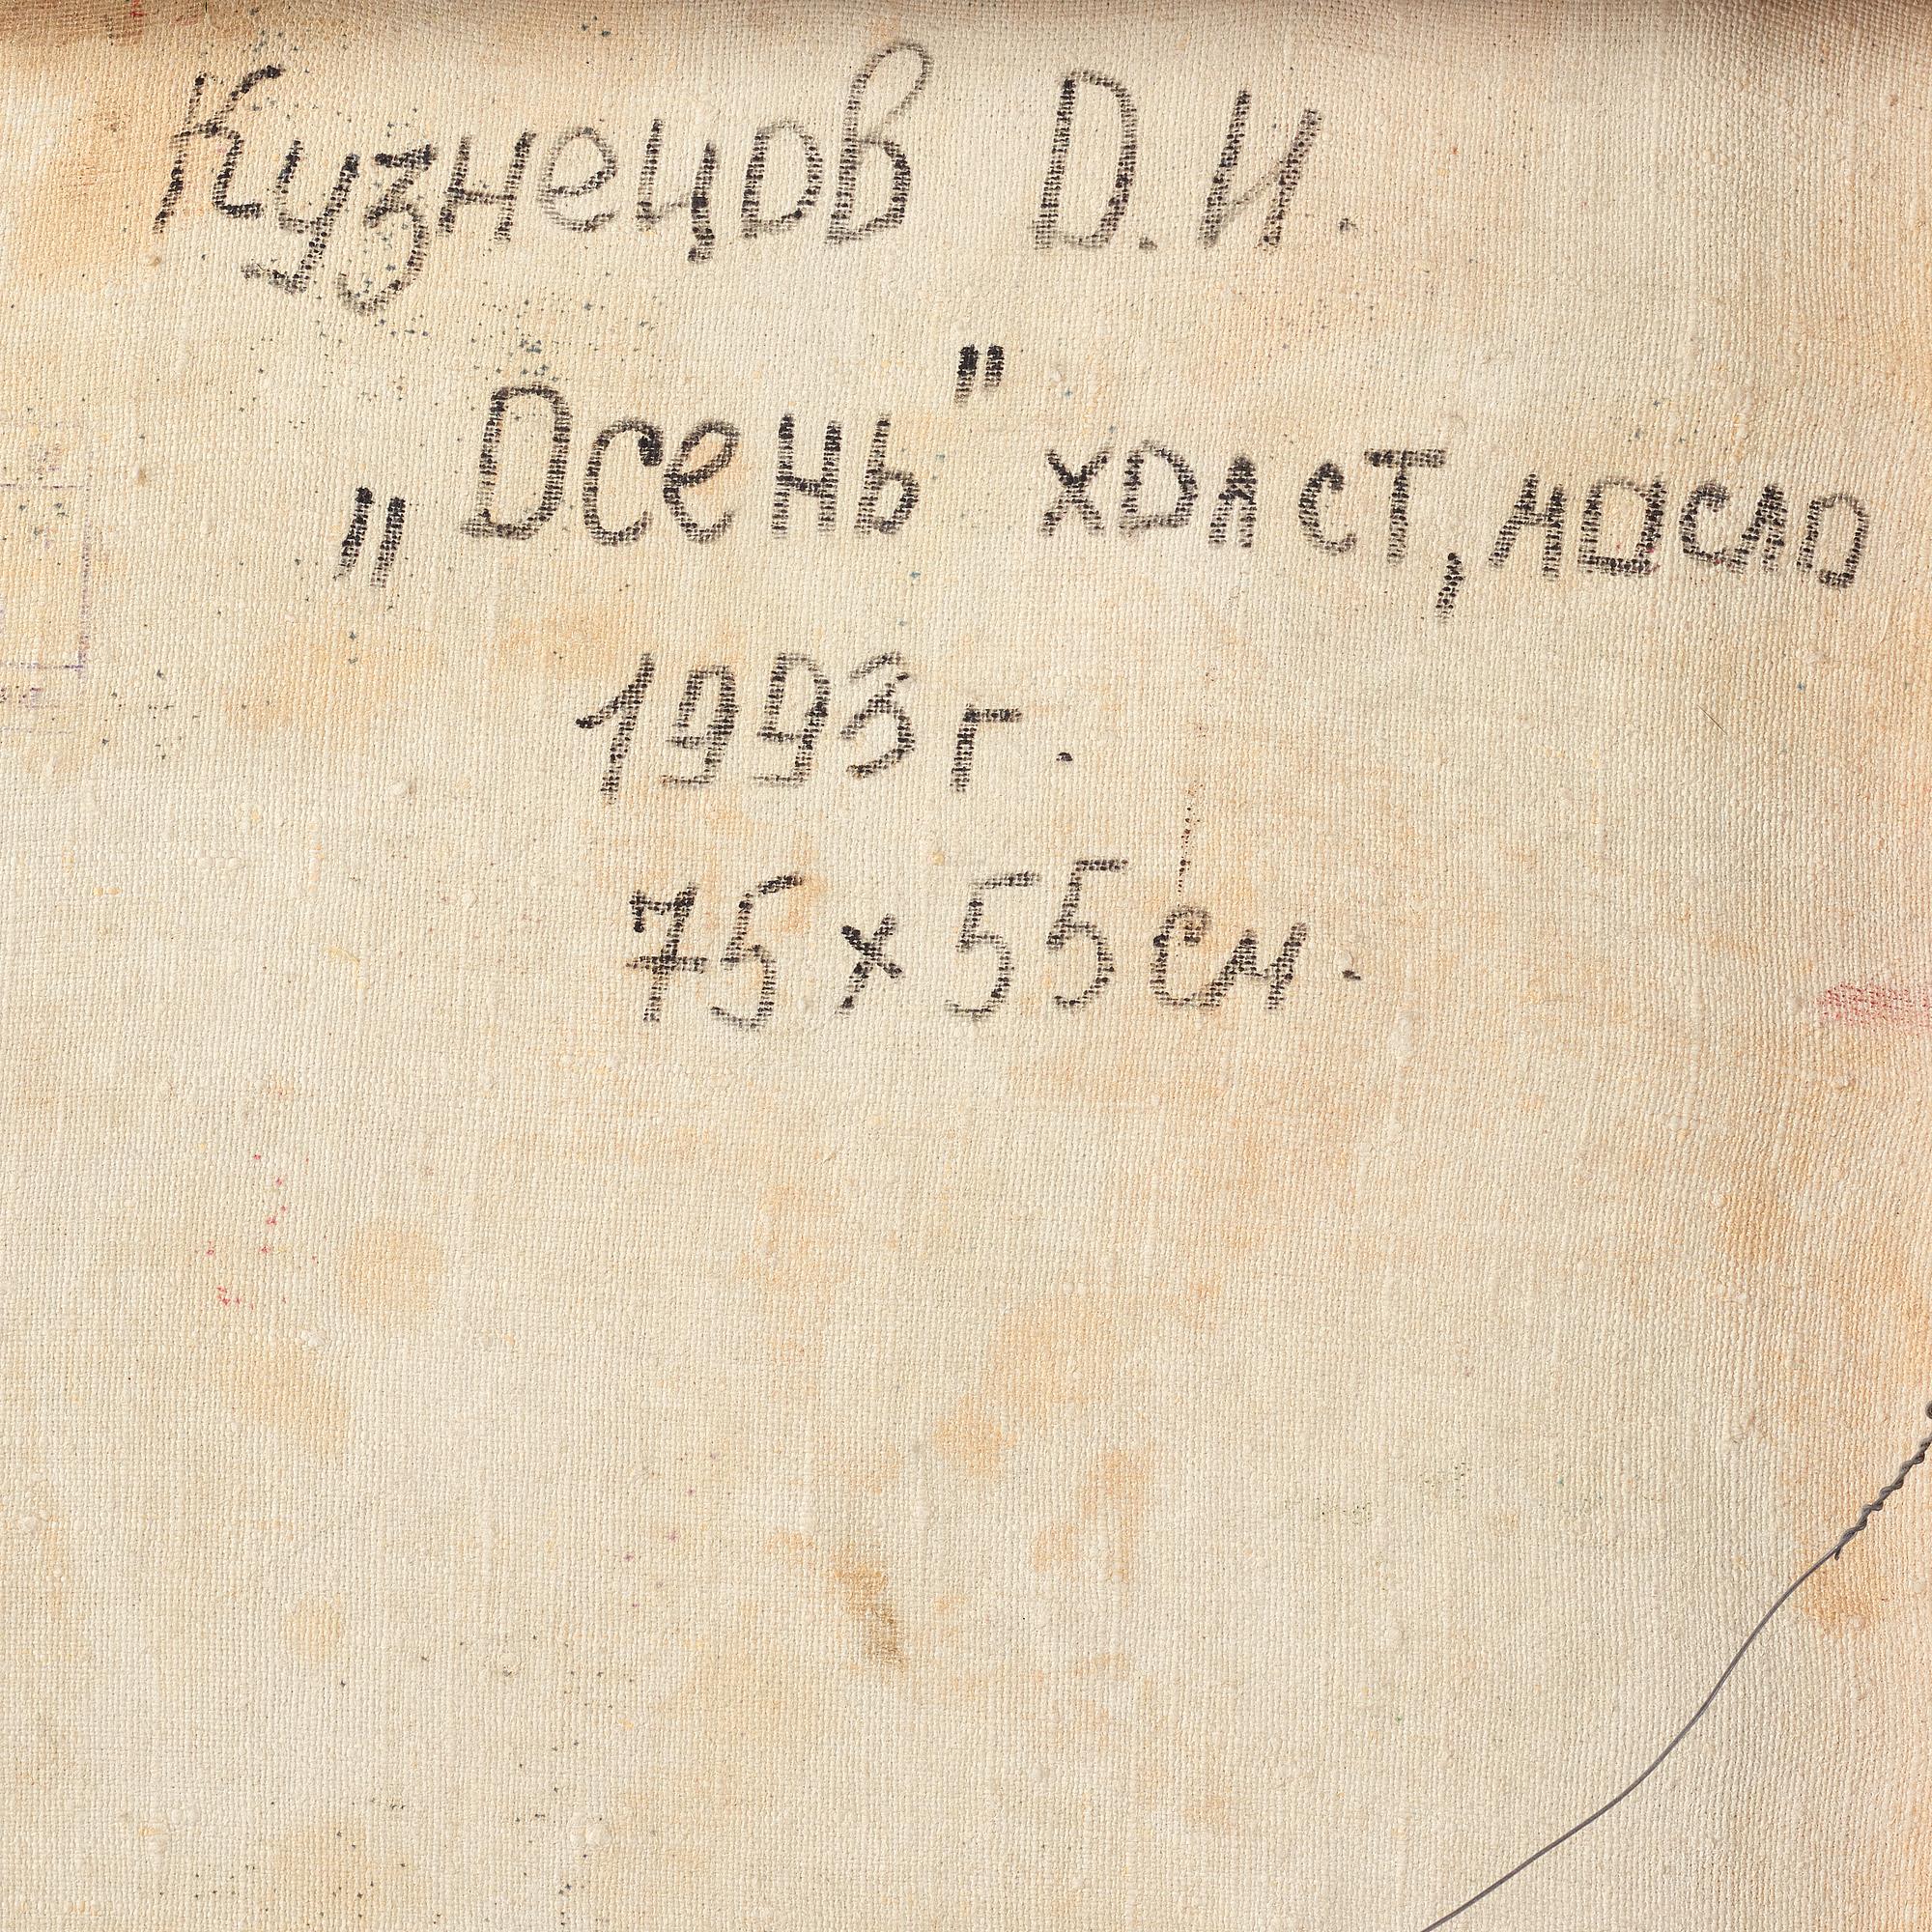 Кузнецов О. И.
„Осень" холст, масло
1993 г.
75 х 55 см.